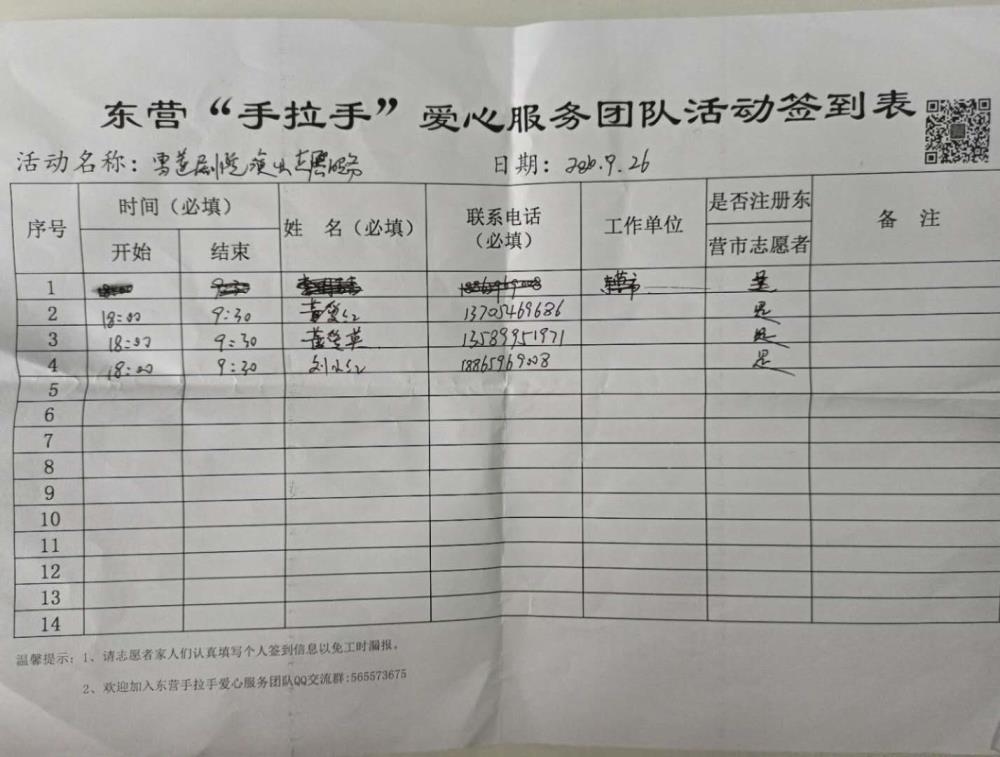 东营“手拉手”爱心服务团队活动签到表
活动名称：雪莲剧院演出志愿服务 日期：2020.9.26
序号 时间（必填） 姓 名（必填） 联系电话（必填） 工作单位 是否注册东营市志愿者 备 注
开始 结束
1 9:30 是
2 18:00 9:30 13705469686 是
3 18:00 9:30 13589951971 是
4 18:00 9:30 刘小红 18865969008 是
5
6
7
8
9
10
11
12
13
14
温馨提示：1、请志愿者家人们认真填写个人签到信息以免工时漏报。
2、欢迎加入东营手拉手爱心服务团队QQ交流群:565573675